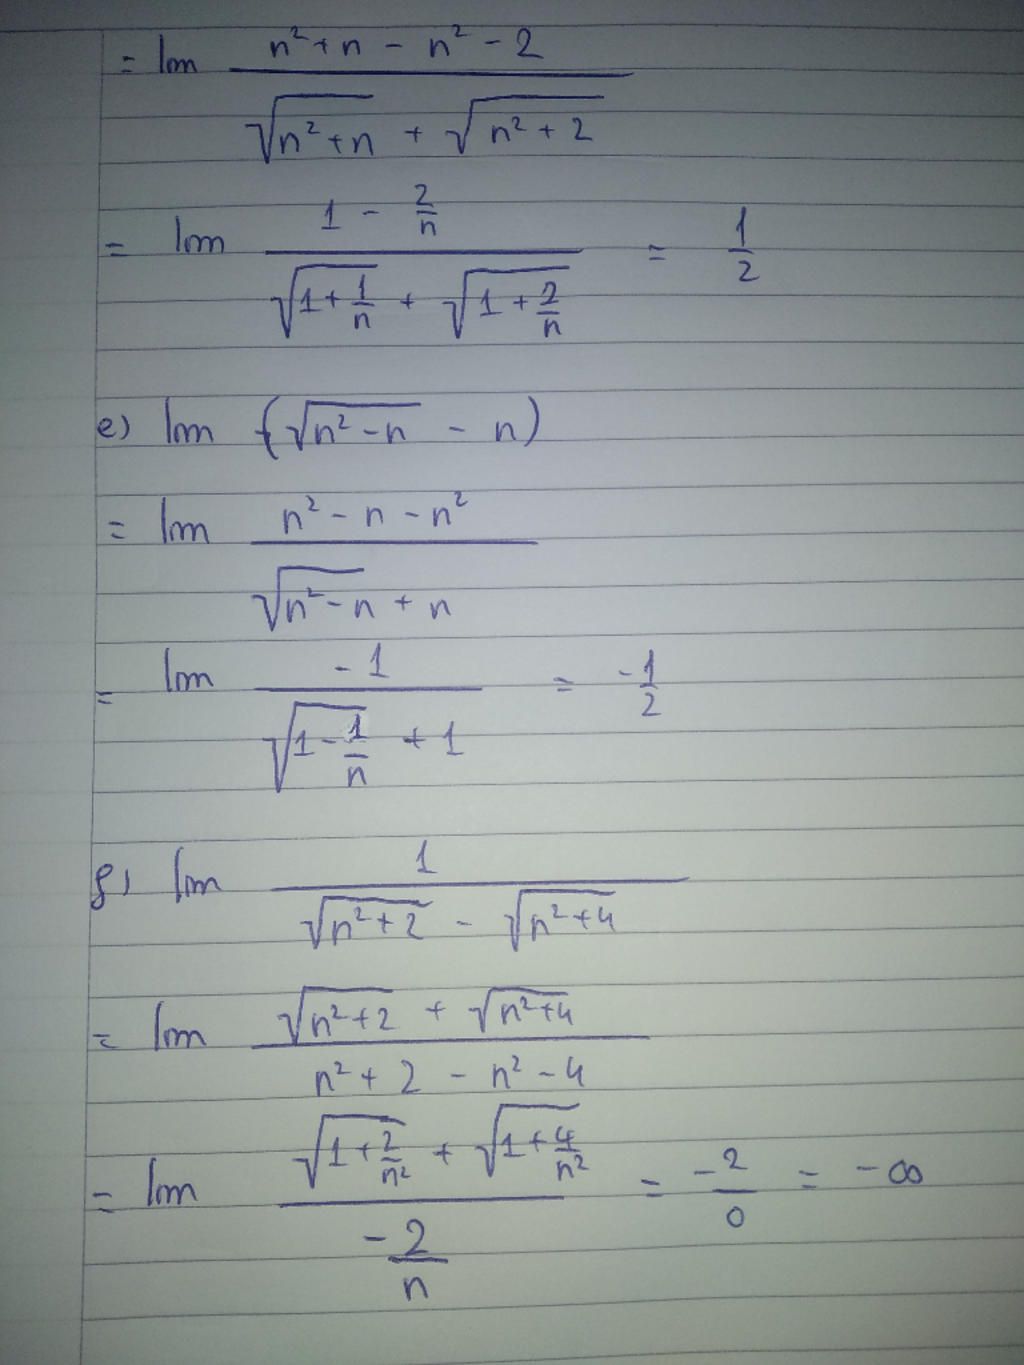 = lim (n² + n - n² - 2) / (√(n² + n) + √(n² + 2))
= lim (1 - 2/n) / (√(1 + 1/n) + √(1 + 2/n)) = 1/2
e) lim (√(n² - n) - n)
= lim (n² - n - n²) / (√(n² - n) + n)
= lim -1 / (√(1 - 1/n) + 1) = -1/2
f) lim 1 / (√(n² + 2) - √(n² + 4))
= lim (√(n² + 2) + √(n² + 4)) / (n² + 2 - n² - 4)
= lim (√(1 + 2/n²) + √(1 + 4/n²)) / (-2/n) = -2/0 = -∞